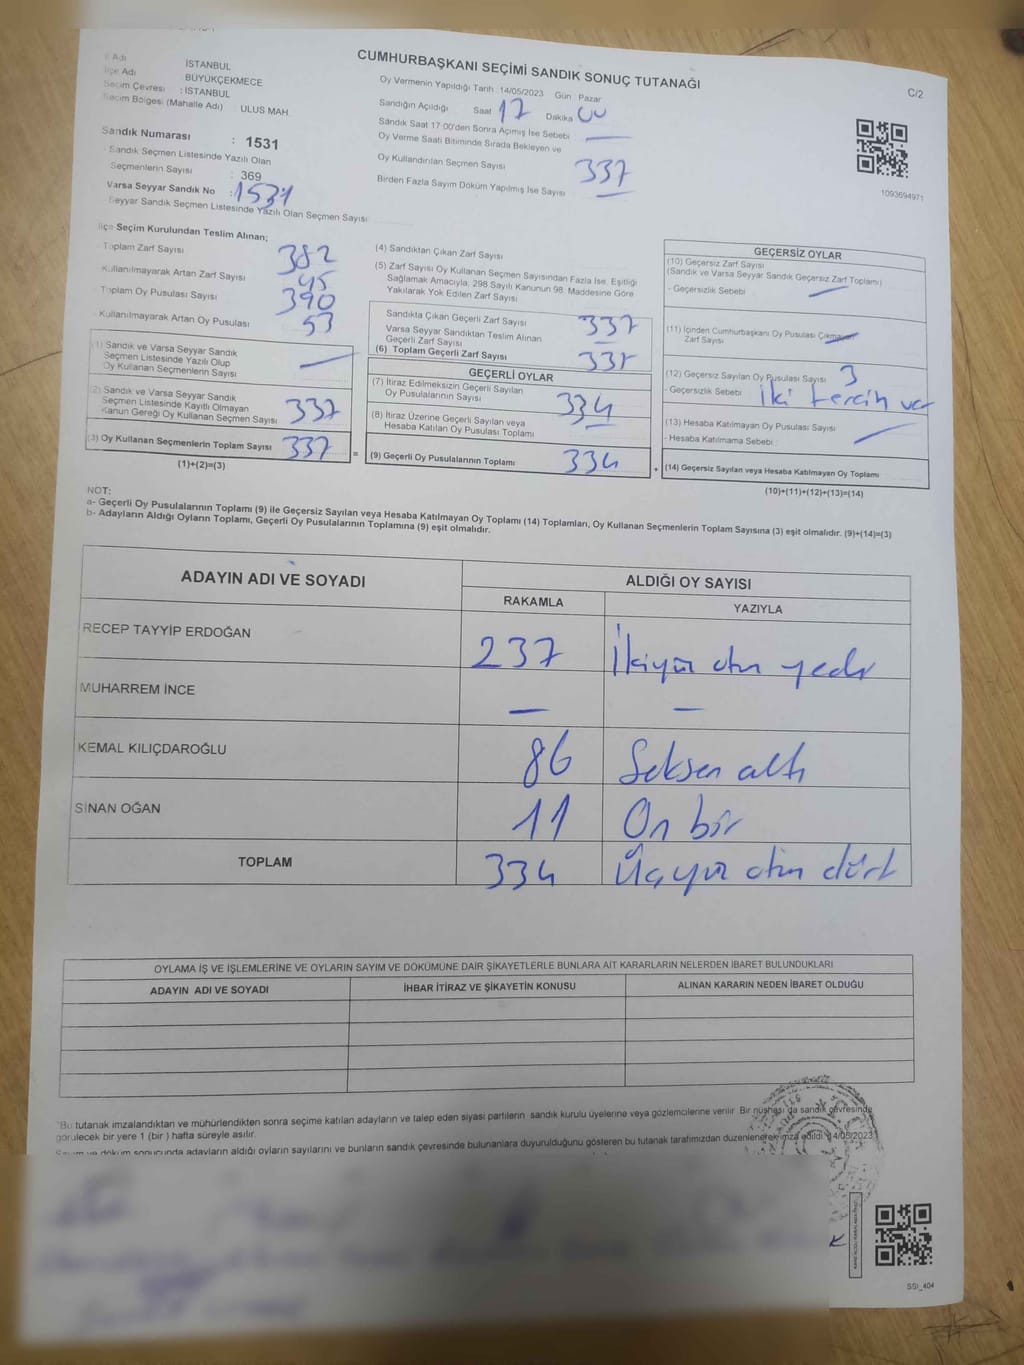 CUMHURBAŞKANI SEÇİMİ SANDIK SONUÇ TUTANAĞI
C/2
İSTANBUL
BÜYÜKÇEKMECE
Seçim Çevresi : İSTANBUL
Seçim Bölgesi (Mahalle Adı) : ULUS MAH.
Sandık Numarası : 1531
Sandık Seçmen Listesinde Yazılı Olan
Seçmenlerin Sayısı : 369
Varsa Seyyar Sandık No : 1531
Seyyar Sandık Seçmen Listesinde Yazılı Olan Seçmen Sayısı
Oy Vermenin Yapıldığı Tarih : 14/05/2023 Gün : Pazar
Sandığın Açıldığı Saat 17 Dakika 00
Sandık Saat 17:00'den Sonra Açılmış İse Sebebi
Oy Verme Saati Bitiminde Sırada Bekleyen ve
Oy Kullandırılan Seçmen Sayısı 337
Birden Fazla Sayım Döküm Yapılmış İse Sayısı
1093694971
İlçe Seçim Kurulundan Teslim Alınan;
Toplam Zarf Sayısı 382
Kullanılmayarak Artan Zarf Sayısı 45
Toplam Oy Pusulası Sayısı 390
Kullanılmayarak Artan Oy Pusulası 53
(1) Sandık ve Varsa Seyyar Sandık
Seçmen Listesinde Yazılı Olup
Oy Kullanan Seçmenlerin Sayısı
(2) Sandık ve Varsa Seyyar Sandık
Seçmen Listesinde Kayıtlı Olmayan
Kanun Gereği Oy Kullanan Seçmen Sayısı 337
(3) Oy Kullanan Seçmenlerin Toplam Sayısı 337 =
(1)+(2)=(3)
(4) Sandıktan Çıkan Zarf Sayısı
(5) Zarf Sayısı Oy Kullanan Seçmen Sayısından Fazla İse, Eşitliği
Sağlamak Amacıyla, 298 Sayılı Kanunun 98. Maddesine Göre
Yakılarak Yok Edilen Zarf Sayısı
Sandıkta Çıkan Geçerli Zarf Sayısı 337
Varsa Seyyar Sandıktan Teslim Alınan
Geçerli Zarf Sayısı
(6) Toplam Geçerli Zarf Sayısı
GEÇERLİ OYLAR
(7) İtiraz Edilmeksizin Geçerli Sayılan
Oy Pusulalarının Sayısı 334
(8) İtiraz Üzerine Geçerli Sayılan veya
Hesaba Katılan Oy Pusulası Toplamı
(9) Geçerli Oy Pusulalarının Toplamı 334 +
GEÇERSİZ OYLAR
(10) Geçersiz Zarf Sayısı
(Sandık ve Varsa Seyyar Sandık Geçersiz Zarf Toplamı)
- Geçersizlik Sebebi
(11) İçinden Cumhurbaşkanı Oy Pusulası Çıkmayan
Zarf Sayısı
(12) Geçersiz Sayılan Oy Pusulası Sayısı 3
- Geçersizlik Sebebi İki tercih var
(13) Hesaba Katılmayan Oy Pusulası Sayısı
- Hesaba Katılmama Sebebi :
(14) Geçersiz Sayılan veya Hesaba Katılmayan Oy Toplamı
(10)+(11)+(12)+(13)=(14)
NOT:
a- Geçerli Oy Pusulalarının Toplamı (9) ile Geçersiz Sayılan veya Hesaba Katılmayan Oy Toplamı (14) Toplamları, Oy Kullanan Seçmenlerin Toplam Sayısına (3) eşit olmalıdır. (9)+(14)=(3)
b- Adayların Aldığı Oyların Toplamı, Geçerli Oy Pusulalarının Toplamına (9) eşit olmalıdır.
ADAYIN ADI VE SOYADI
ALDIĞI OY SAYISI
RAKAMLA YAZIYLA
RECEP TAYYİP ERDOĞAN 237 İkiyüz otuz yedi
MUHARREM İNCE — —
KEMAL KILIÇDAROĞLU 86 Seksen altı
SİNAN OĞAN 11 On bir
TOPLAM 334 Üçyüz otuz dört
OYLAMA İŞ VE İŞLEMLERİNE VE OYLARIN SAYIM VE DÖKÜMÜNE DAİR ŞİKAYETLERLE BUNLARA AİT KARARLARIN NELERDEN İBARET BULUNDUKLARI
ADAYIN ADI VE SOYADI İHBAR İTİRAZ VE ŞİKAYETİN KONUSU ALINAN KARARIN NEDEN İBARET OLDUĞU
"Bu tutanak imzalandıktan ve mühürlendikten sonra seçime katılan adayların ve talep eden siyasi partilerin, sandık kurulu üyelerine veya gözlemcilerine verilir. Bir nüshası da sandık çevresinde
görülecek bir yere 1 (bir ) hafta süreyle asılır.
Sayım ve döküm sonucunda adayların aldığı oyların sayılarını ve bunların sandık çevresinde bulunanlara duyurulduğunu gösteren bu tutanak tarafımızdan düzenlenerek imza edildi. 14/05/2023
SSI_404